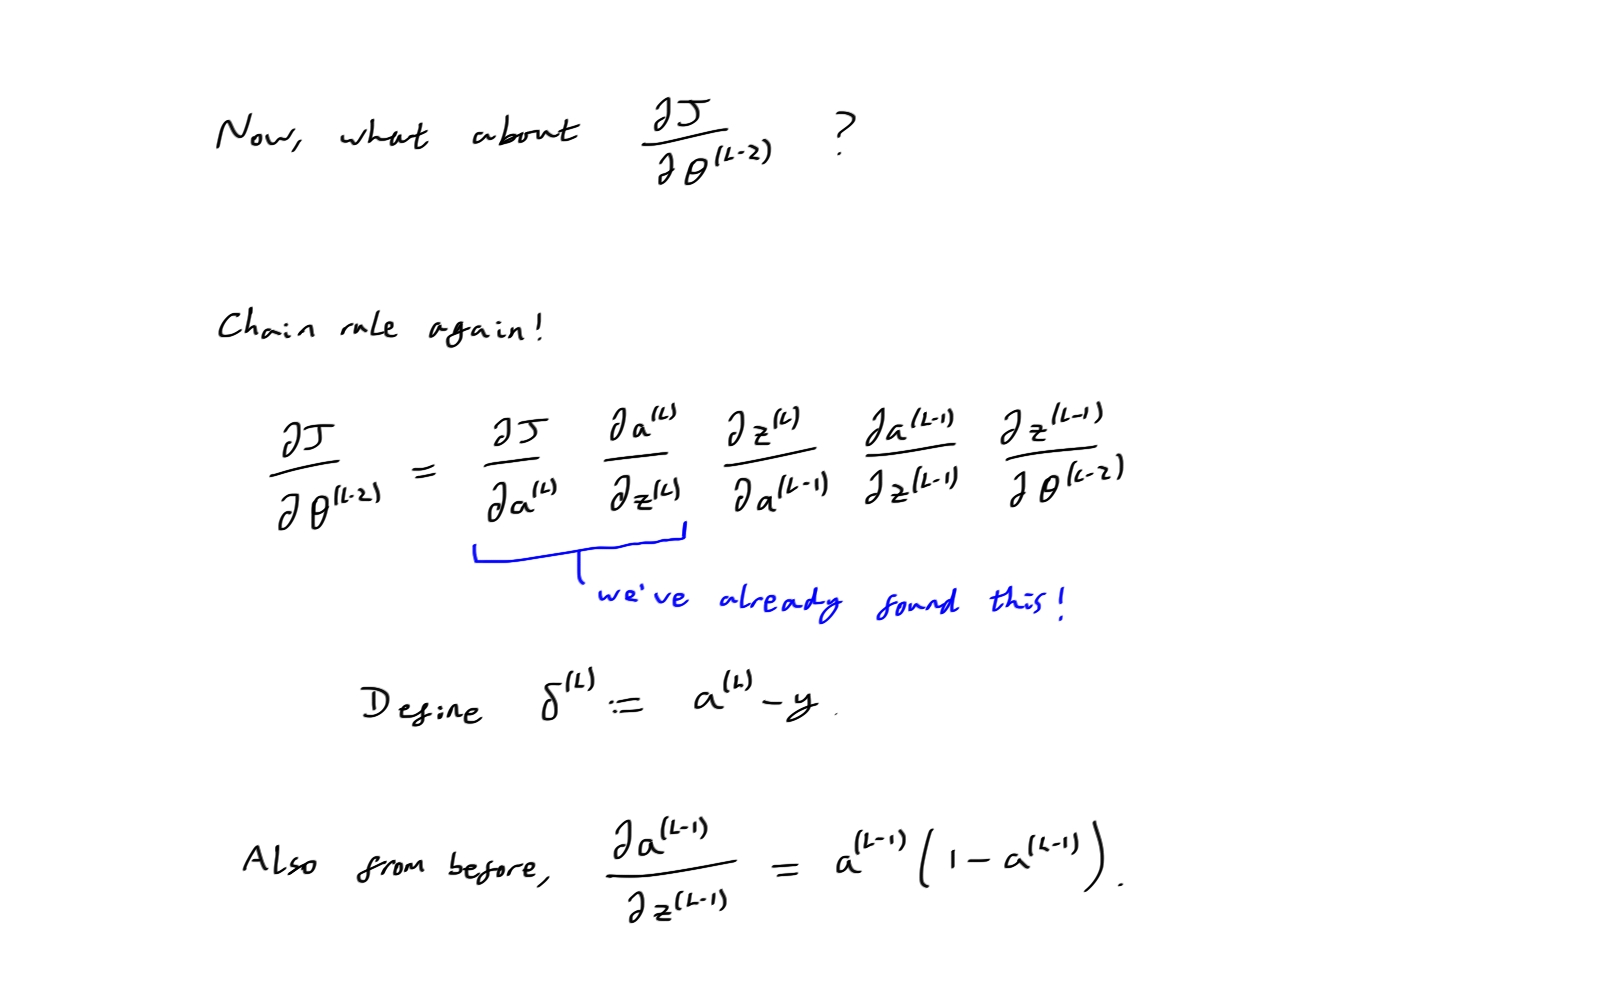 Now, what about ∂J/∂θ^(L-2) ?
Chain rule again!
∂J/∂θ^(L-2) = ∂J/∂a^(L) ∂a^(L)/∂z^(L) ∂z^(L)/∂a^(L-1) ∂a^(L-1)/∂z^(L-1) ∂z^(L-1)/∂θ^(L-2)
we've already found this!
Define δ^(L) := a^(L) - y.
Also from before, ∂a^(L-1)/∂z^(L-1) = a^(L-1) (1 - a^(L-1)).